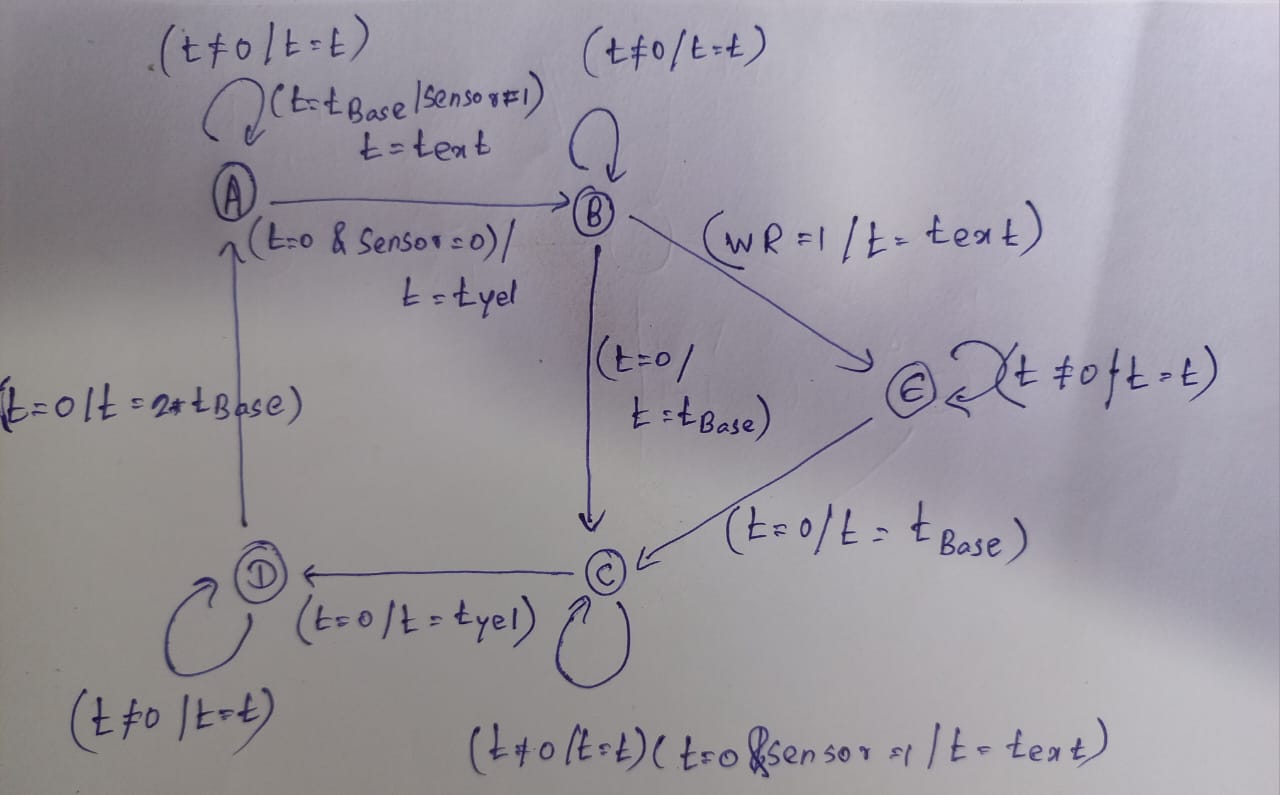 (t≠0/t=t)
(t≠0/t=t)
(t=tBase/Sensor=1)
t=text
A
B
(t=0 & Sensor=0)/
t=tyel
(WR=1/t=text)
(t=0/
t=tBase)
E
(t≠0/t=t)
(t=0/t=2*tBase)
(t=0/t=tBase)
D
C
(t=0/t=tyel)
(t≠0/t=t)
(t≠0/t=t)(t=0 & sensor=1/t=text)